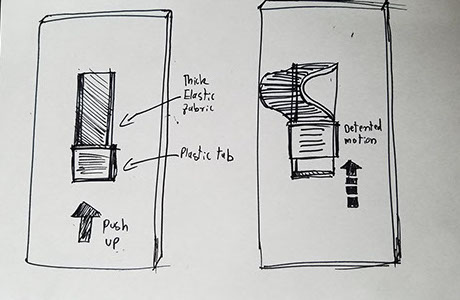 Thick
Elastic
fabric
Plastic tab
push
up
Detented
motion